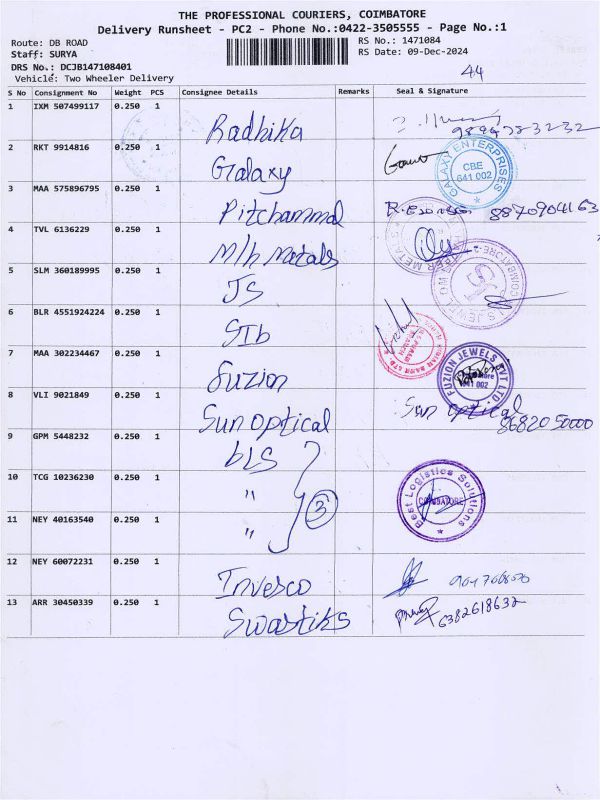 THE PROFESSIONAL COURIERS, COIMBATORE
Delivery Runsheet - PC2 - Phone No.:0422-3505555 - Page No.:1
Route: DB ROAD RS No.: 1471084
Staff: SURYA RS Date: 09-Dec-2024
DRS No.: DCJB147108401
Vehicle: Two Wheeler Delivery 44
S No Consignment No Weight PCS Consignee Details Remarks Seal & Signature
1 IXM 507499117 0.250 1 Radhika
2 RKT 9914816 0.250 1 Galaxy GALAXY ENTERPRISES CBE 641 002
3 MAA 575896795 0.250 1 Pitchammal 8870904163
4 TVL 6136229 0.250 1 M/h Metals
5 SLM 360189995 0.250 1 JS
6 BLR 4551924224 0.250 1 SIb
7 MAA 302234467 0.250 1 Fuzion FUZION JEWELS PVT LTD
8 VLI 9021849 0.250 1 Sun optical Sun optical 86820 50000
9 GPM 5448232 0.250 1 bLS
10 TCG 10236230 0.250 1 " 3 Best Logistics Solutions COIMBATORE
11 NEY 40163540 0.250 1 "
12 NEY 60072231 0.250 1 Invesco
13 ARR 30450339 0.250 1 Swastiks 6382618632